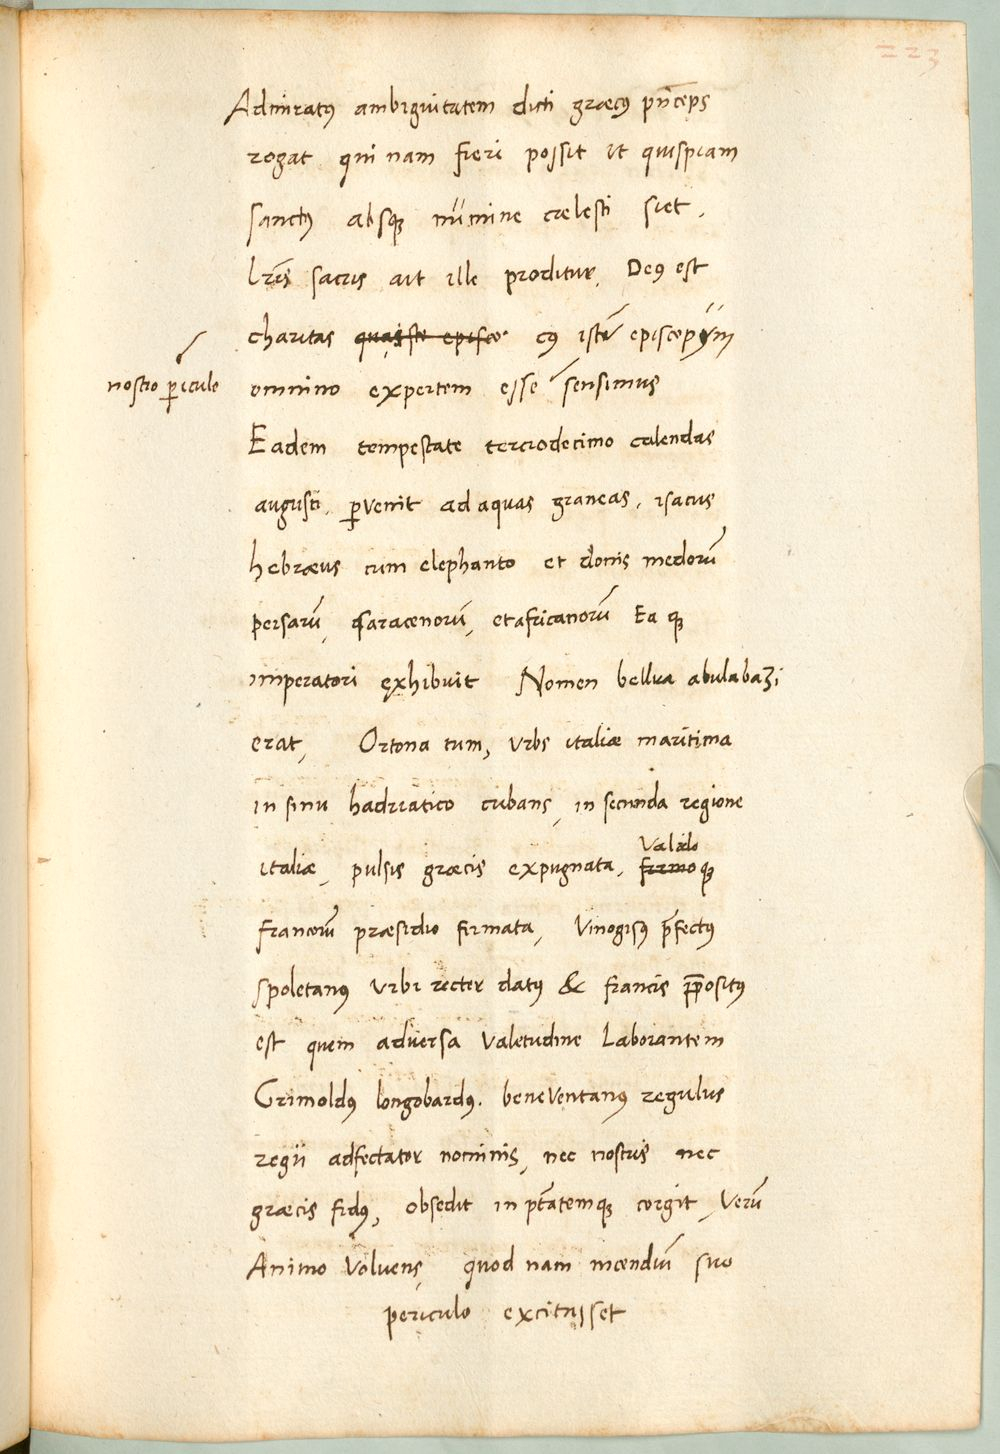 223
Admiratꝰ ambiguitatem dicti græcꝰ pn̄ceps
rogat qui nam fieri possit ut quispiam
sanctꝰ absqꝫ nūmine cælesti siet.
Lr̄is sacris ait ille proditur, Deꝰ est
charitas quā iste episco cꝰ istū episcopum
nostro ꝑiculo omnino expertem esse sensimus
Eadem tempestate terciodecimo calendas
augusti, ꝑvenit ad aquas graneas, isacus
hebræus cum elephanto et donis medorū
persarū, saracenorū, et africanorū Ea qꝫ
imperatori exhibuit Nomen bellua abulabazi
erat, Ortona tum, urbs italiæ maritima
in sinu hadriatico cubans, in secunda regione
Valido
italiæ, pulsis græcis expugnata, firmo qꝫ
francorū præsidio firmata, Vinogisꝰ p̄fectꝰ
spoletanꝰ urbi recter datꝰ & francis p̄positꝰ
est quem adversa valetudine laborantem
Grimoldꝰ longobardꝰ. beneventanꝰ regulus
regii adfectator nominis, nec nostris nec
græcis fidꝰ, obsedit in ptātemqꝫ corgit, Verū
Animo volvens, quod nam incendiū suo
periculo excitasset